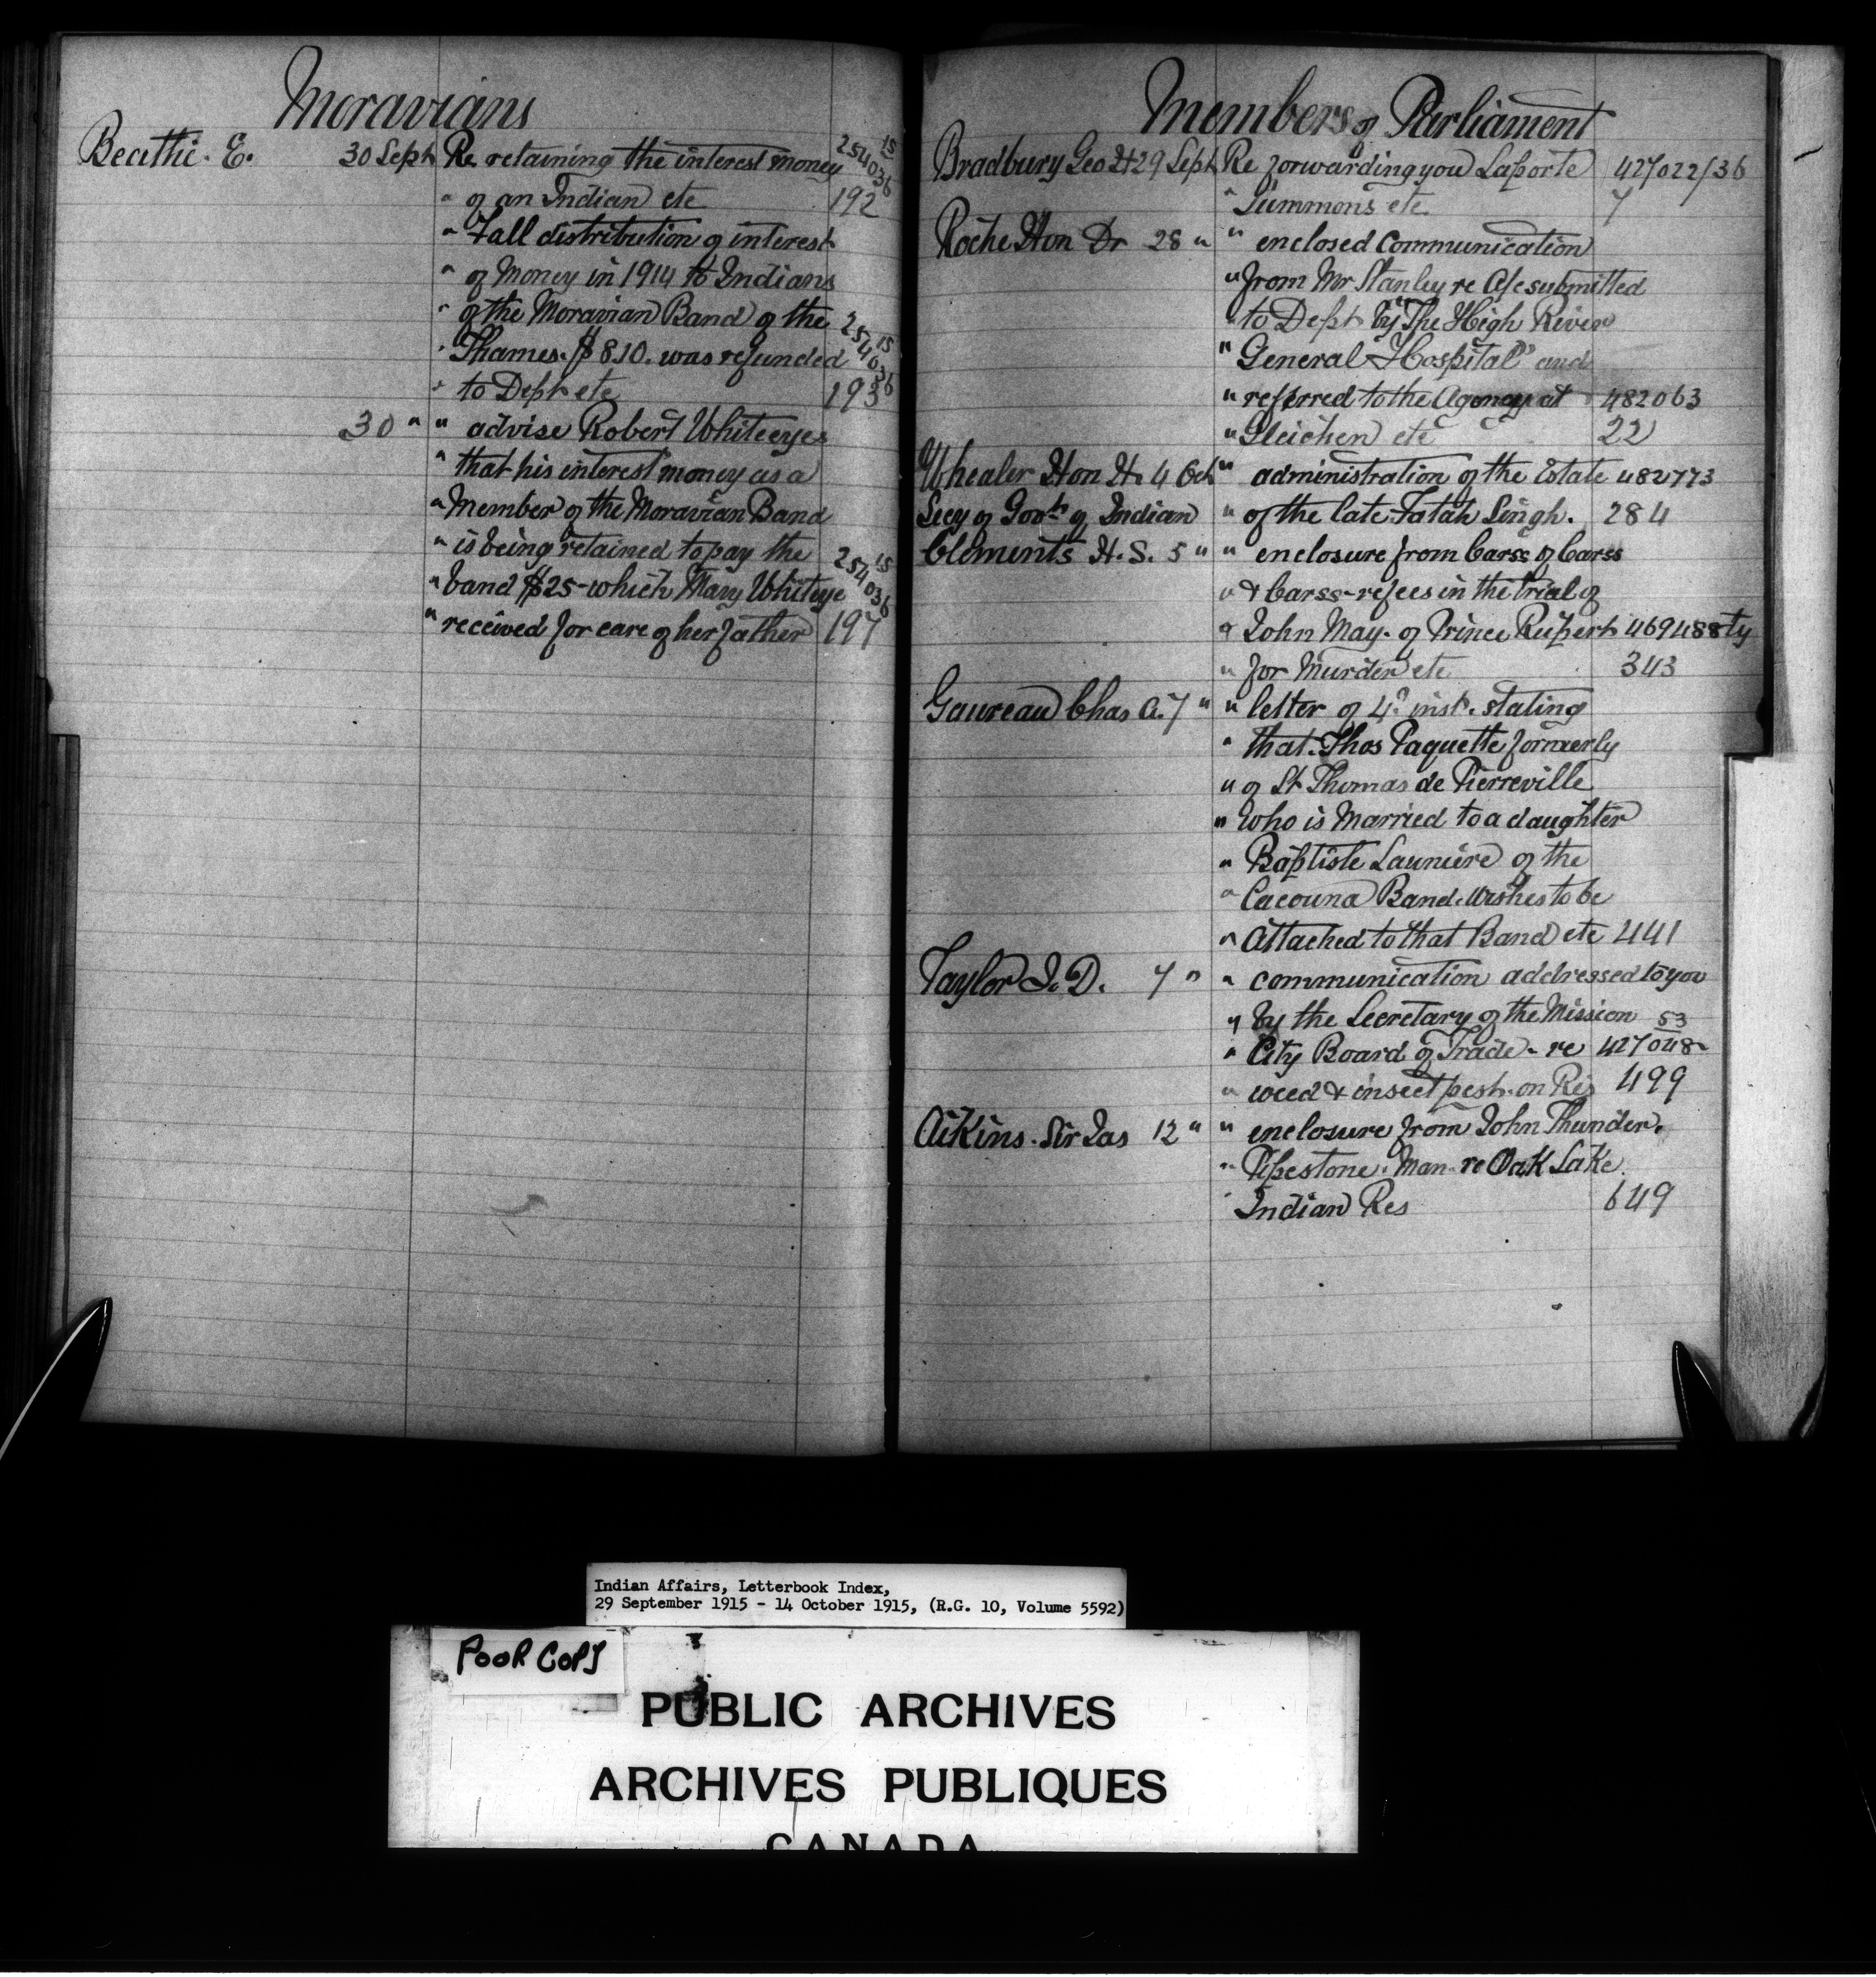 Moravians
Beattie. E. 30 Sept Re retaining the interest money 254036 15
" of an Indian etc 192
" Fall distribution of interest
" of Money in 1914 to Indians
" of the Moravian Band of the
" Thames. $8.10. was refunded 254036 15
" to Dept etc 193
30 " " advise Robert Whiteeyes
" that his interest money as a
" Member of the Moravian Band
" is being retained to pay the
" band $25- which Mary Whiteye 254036 15
" received for care of her father 197
Members of Parliament
Bradbury Geo H 29 Sept Re forwarding you Laporte 427022/36
" Summons etc 7
Roche Hon Dr 28 " " enclosed communication
" from Mr Stanley re A/c submitted
" to Dept by "The High River
" General Hospital" and
" referred to the Agency at 482063
" Gleichen etc 22
Whealer Hon H. 4 Oct " administration of the Estate 482773
Secy of Govt of Indian " of the late Fatah Singh. 284
Clements H. S. 5 " " enclosure from Carss of Carss
" & Carss - refees in the trial of
" John May. of Prince Rupert 469488ty
" for Murder etc 343
Gaureau Chas A. 7 " " letter of 4th inst. stating
" that Thos Paquette formerly
" of St Thomas de Pierreville
" who is Married to a daughter
" Baptiste Launiere of the
" Cacouna Band. Wishes to be
" Attached to that Band etc 441
Taylor J. D. 7 " " communication addressed to you
" by the Secretary of the Mission 53
" City Board of Trade - re 427048-
" weed & insect pest. on Res 499
Aikins. Sir Jas 12 " " enclosure from John Thunder.
" Pipestone. Man. re Oak Lake.
" Indian Res 649
Indian Affairs, Letterbook Index,
29 September 1915 - 14 October 1915, (R.G. 10, Volume 5592)
POOR COPY
PUBLIC ARCHIVES
ARCHIVES PUBLIQUES
CANADA